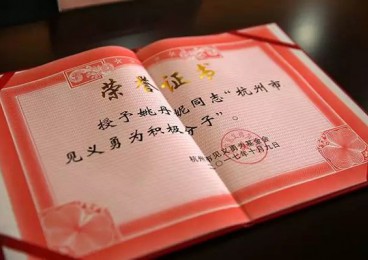 荣誉证书
授予姚丹妮同志“杭州市
见义勇为积极分子”。
杭州市见义勇为基金会
二〇一七年十月九日